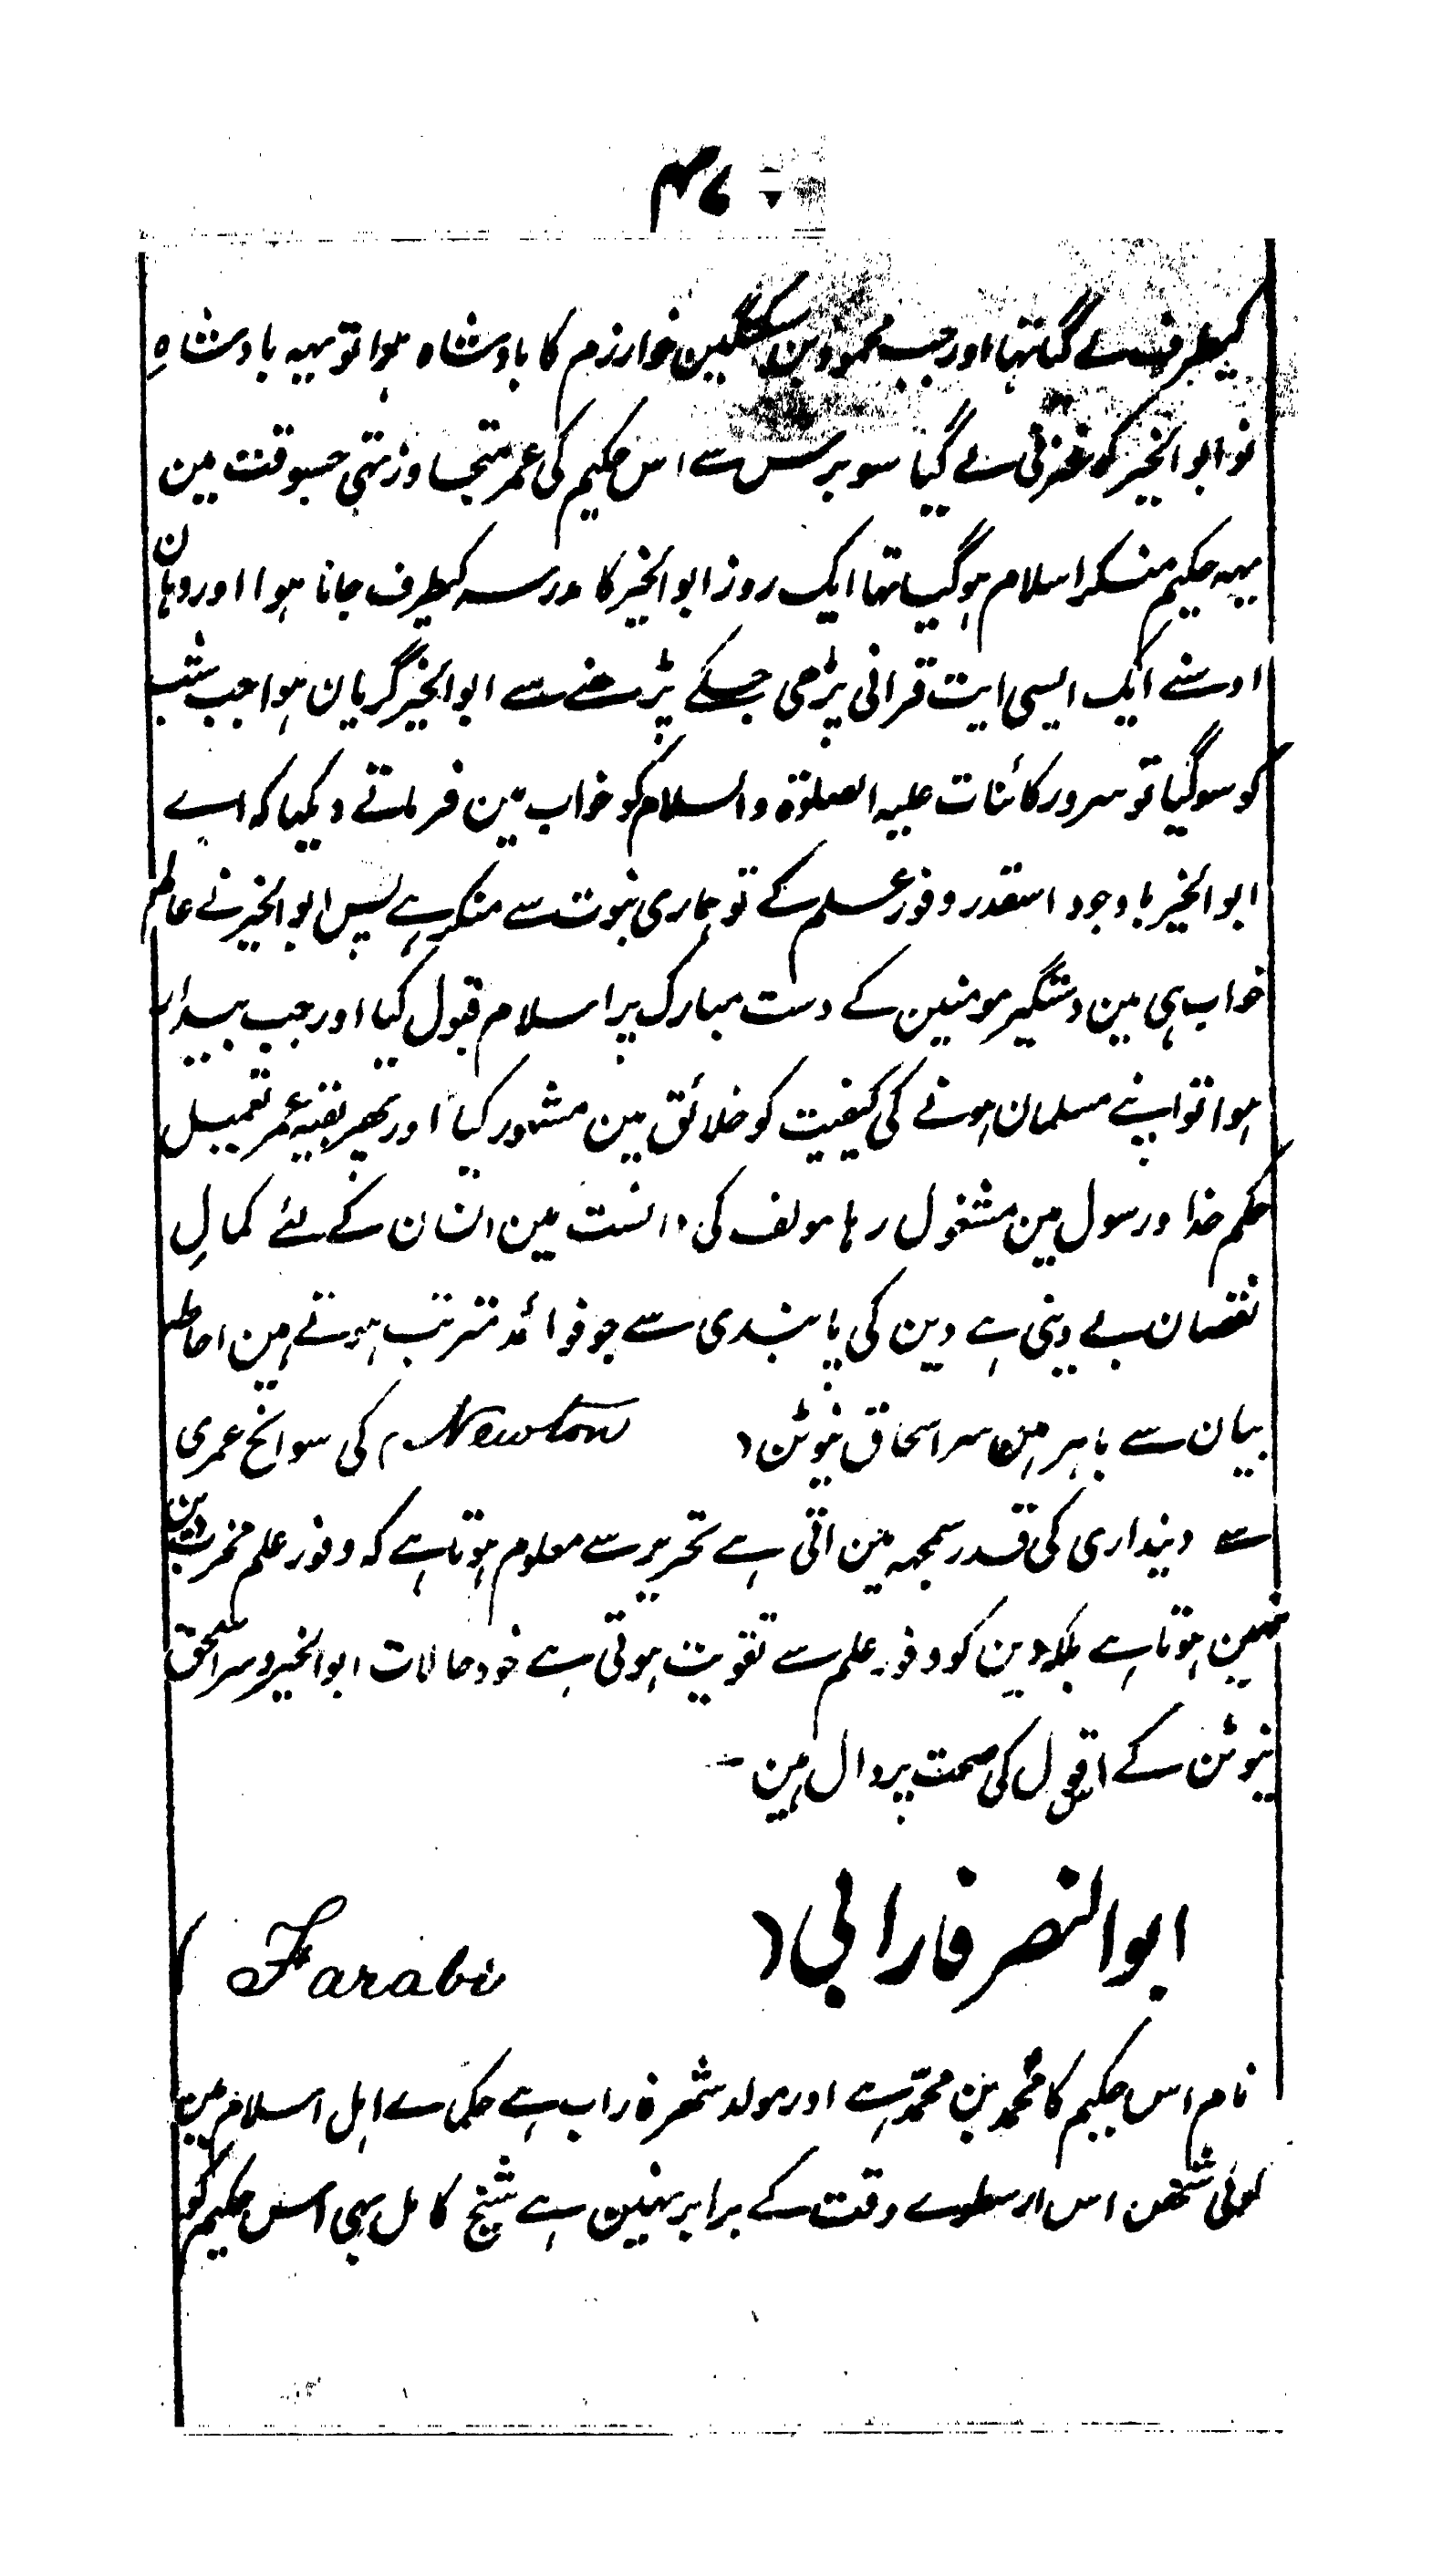 ۴۷
کیطرف لے گیا تہا اور جب محمود بن سبکتگین خوارزم کا بادشاہ ہوا تو یہہ بادشاہِ
نو ابو الخیر کو غزنی لے گیا سو برس سے اس حکیم کی عمر متجاوز تہی جسوقت مین
یہہ حکیم منکر اسلام ہو گیا تہا ایک روز ابو الخیر کا مدرسہ کیطرف جانا ہوا اور وہان
اوسنے ایک ایسی ایت قرانی پڑھی جسکے پڑھنے سے ابو الخیر گریان ہوا جب شب
کو سو گیا تو سرور کائنات علیہ الصلوۃ والسلام کو خواب مین فرماتے دیکہا کہ اے
ابو الخیر باوجود اسقدر وفور علم کے تو ہماری نبوت سے منکر ہے پس ابو الخیر نے عالم
خواب ہی مین دستگیر مومنین کے دست مبارک پر اسلام قبول کیا اور جب بیدار
ہوا تو اپنے مسلمان ہونے کی کیفیت کو خلائق مین مشہور کیا اور پھر بقیہ عمر تعمیل
حکم خدا و رسول مین مشغول رہا مولف کی دانست مین انسان کے لئے کمالِ
نقصان بے دینی ہے دین کی پابندی سے جو فوائد مترتب ہوتے ہین احاطہ
بیان سے باہر ہین سر اسحاق نیوٹن ( Newton ) کی سوانح عمری
سے دینداری کی قدر سمجہہ مین اتی ہے تحریر سے معلوم ہوتا ہے کہ وفور علم مخرب دین
نہین ہوتا ہے بلکہ دین کو وفور علم سے تقویت ہوتی ہے خود حالات ابو الخیر و سر اسحق
نیوٹن کے اس قول کی صحت پر دال ہین -
ابو النصر فارابی ( Farabi )
نام اس حکیم کا محمد بن محمد ہے اور مولد شہر فاراب ہے حکماے اہل اسلام مین
کوئی شخص اس ارسطوے وقت کے برابر نہین ہے شیخ کامل بہی اس حکیم کو